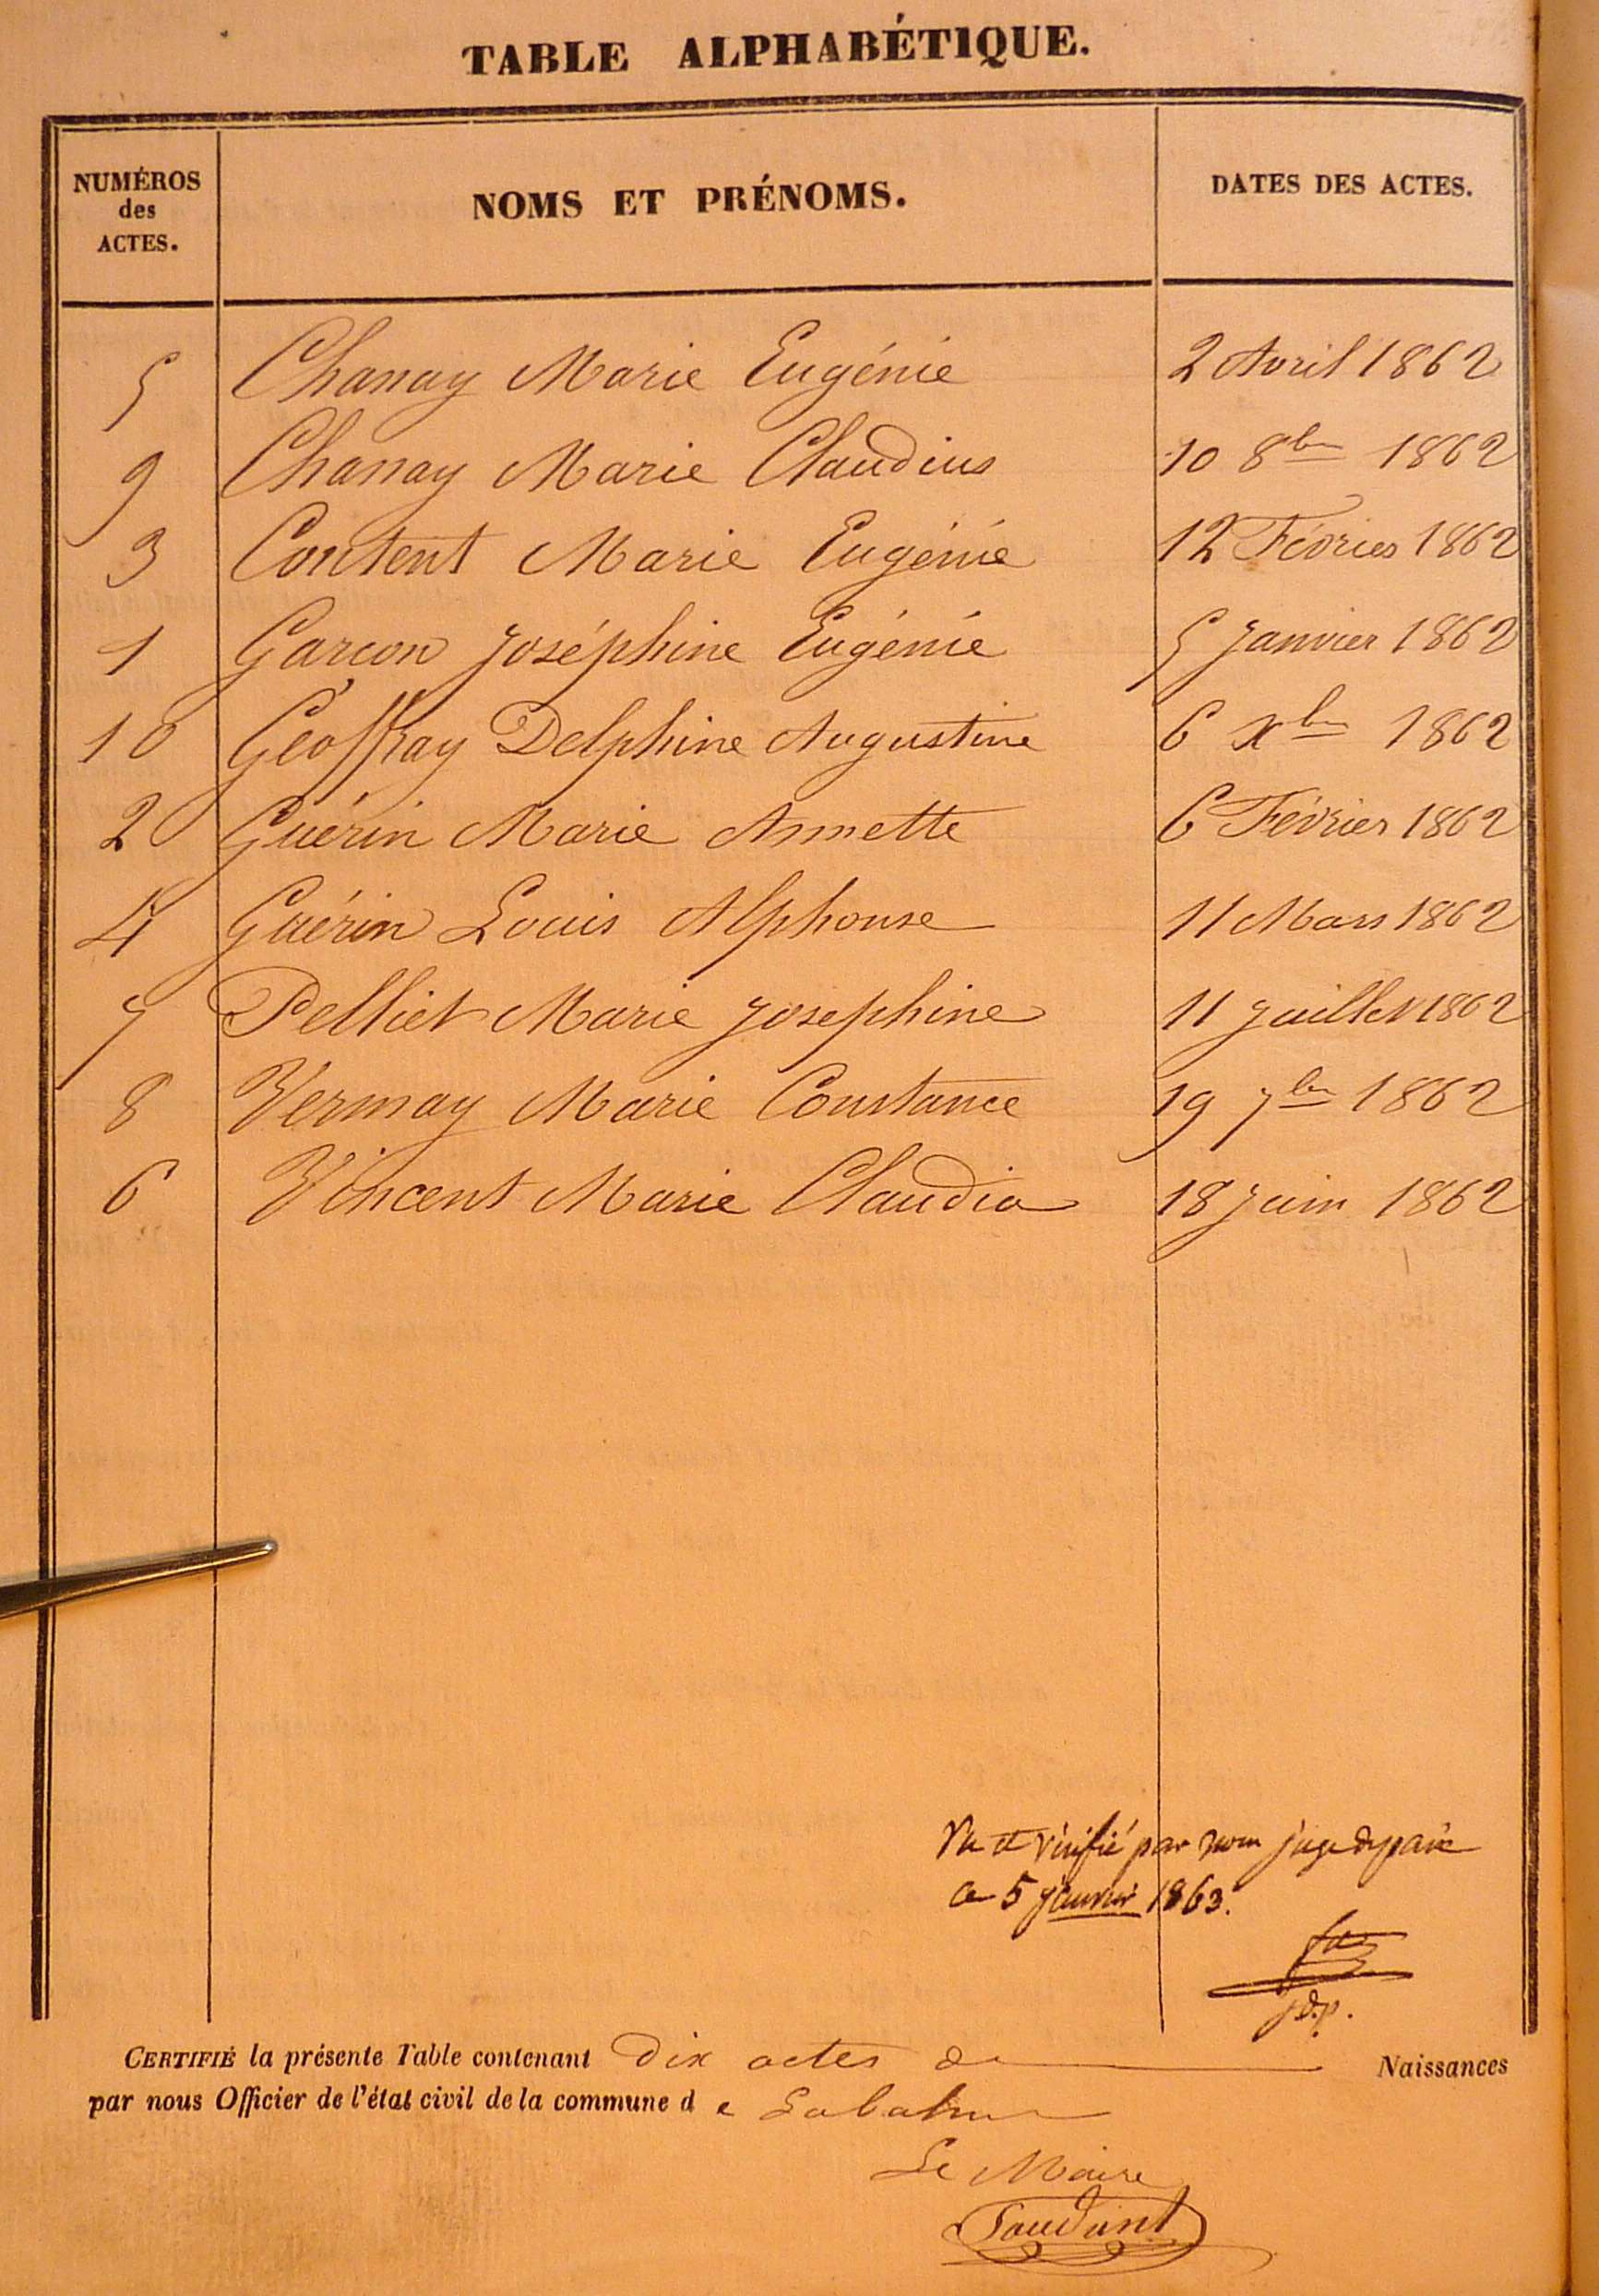 TABLE ALPHABÉTIQUE.
NUMÉROS
des
ACTES.
NOMS ET PRÉNOMS.
DATES DES ACTES.
5 Chanay Marie Eugénie 2 Avril 1862
9 Chanay Marie Claudius 10 8bre 1862
3 Content Marie Eugénie 12 Février 1862
1 Garcon Joséphine Eugénie 5 Janvier 1862
10 Géoffray Delphine Augustine 6 Xbre 1862
2 Guérin Marie Annette 6 Février 1862
4 Guérin Louis Alphonse 11 Mars 1862
7 Pelliet Marie Josephine 11 Juillet 1862
8 Vermay Marie Constance 19 7bre 1862
6 Vincent Marie Claudia 18 Juin 1862
Vu et vérifié par nous juge de paix
ce 5 janvier 1863.
j.d.p.
CERTIFIÉ la présente Table contenant dix actes de Naissances
par nous Officier de l'état civil de la commune d e
Le Maire